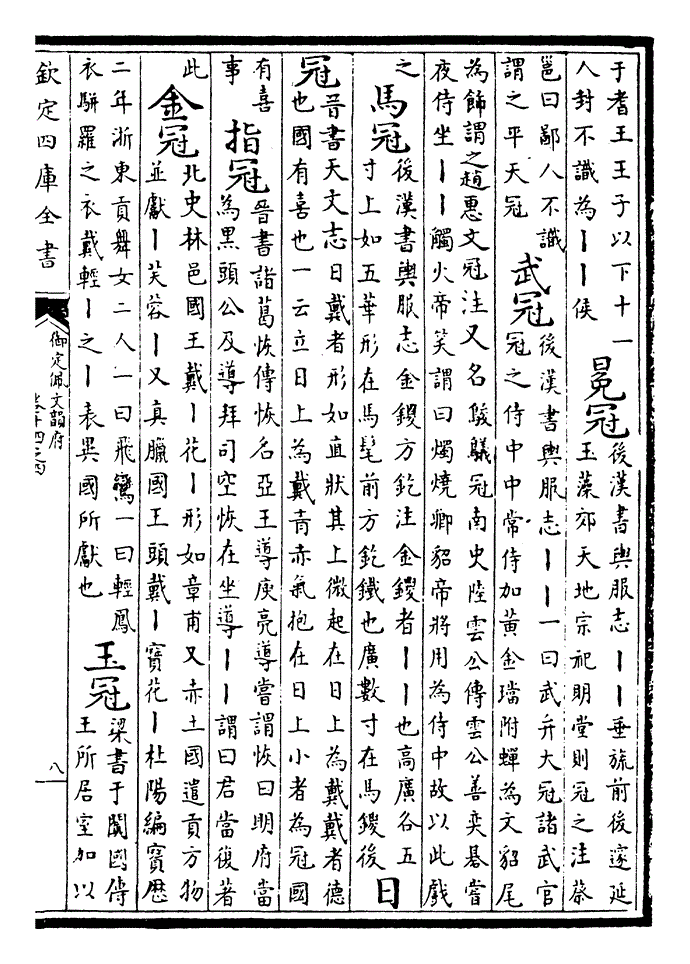 于耆王王子以下十一
人封不識為丨丨侯
冕冠
後漢書輿服志丨丨垂旒前後邃延
玉藻郊天地宗祀明堂則冠之注蔡
邕曰鄙人不識
謂之平天冠
武冠
後漢書輿服志丨丨一曰武弁大冠諸武官
冠之侍中中常侍加黃金璫附蟬為文貂尾
為飾謂之趙惠文冠注又名鵔鸃冠南史陸雲公傳雲公善奕碁嘗
夜侍坐丨丨觸火帝笑謂曰燭燒卿貂帝將用為侍中故以此戲
之
馬冠
後漢書輿服志金鍐方釳注金鍐者丨丨也高廣各五
寸上如五華形在馬髦前方釳鐵也廣數寸在馬鍐後
日
冠
晉書天文志日戴者形如直狀其上微起在日上為戴戴者德
也國有喜也一云立日上為戴青赤氣抱在日上小者為冠國
有喜
事
指冠
晉書諸葛恢傳恢名亞王導庾亮導嘗謂恢曰明府當
為黑頭公及導拜司空恢在坐導丨丨謂曰君當復著
此
金冠
北史林邑國王戴丨花丨形如章甫又赤土國遣貢方物
並獻丨芙蓉丨又真臘國王頭戴丨寶花丨杜陽編寶歷
二年浙東貢舞女二人一曰飛鸞一曰輕鳳
衣駢羅之衣戴輕丨之丨表異國所獻也
玉冠
梁書于闐國傳
王所居室加以
欽定四庫全書
御定佩文韻府
卷十四之四
八